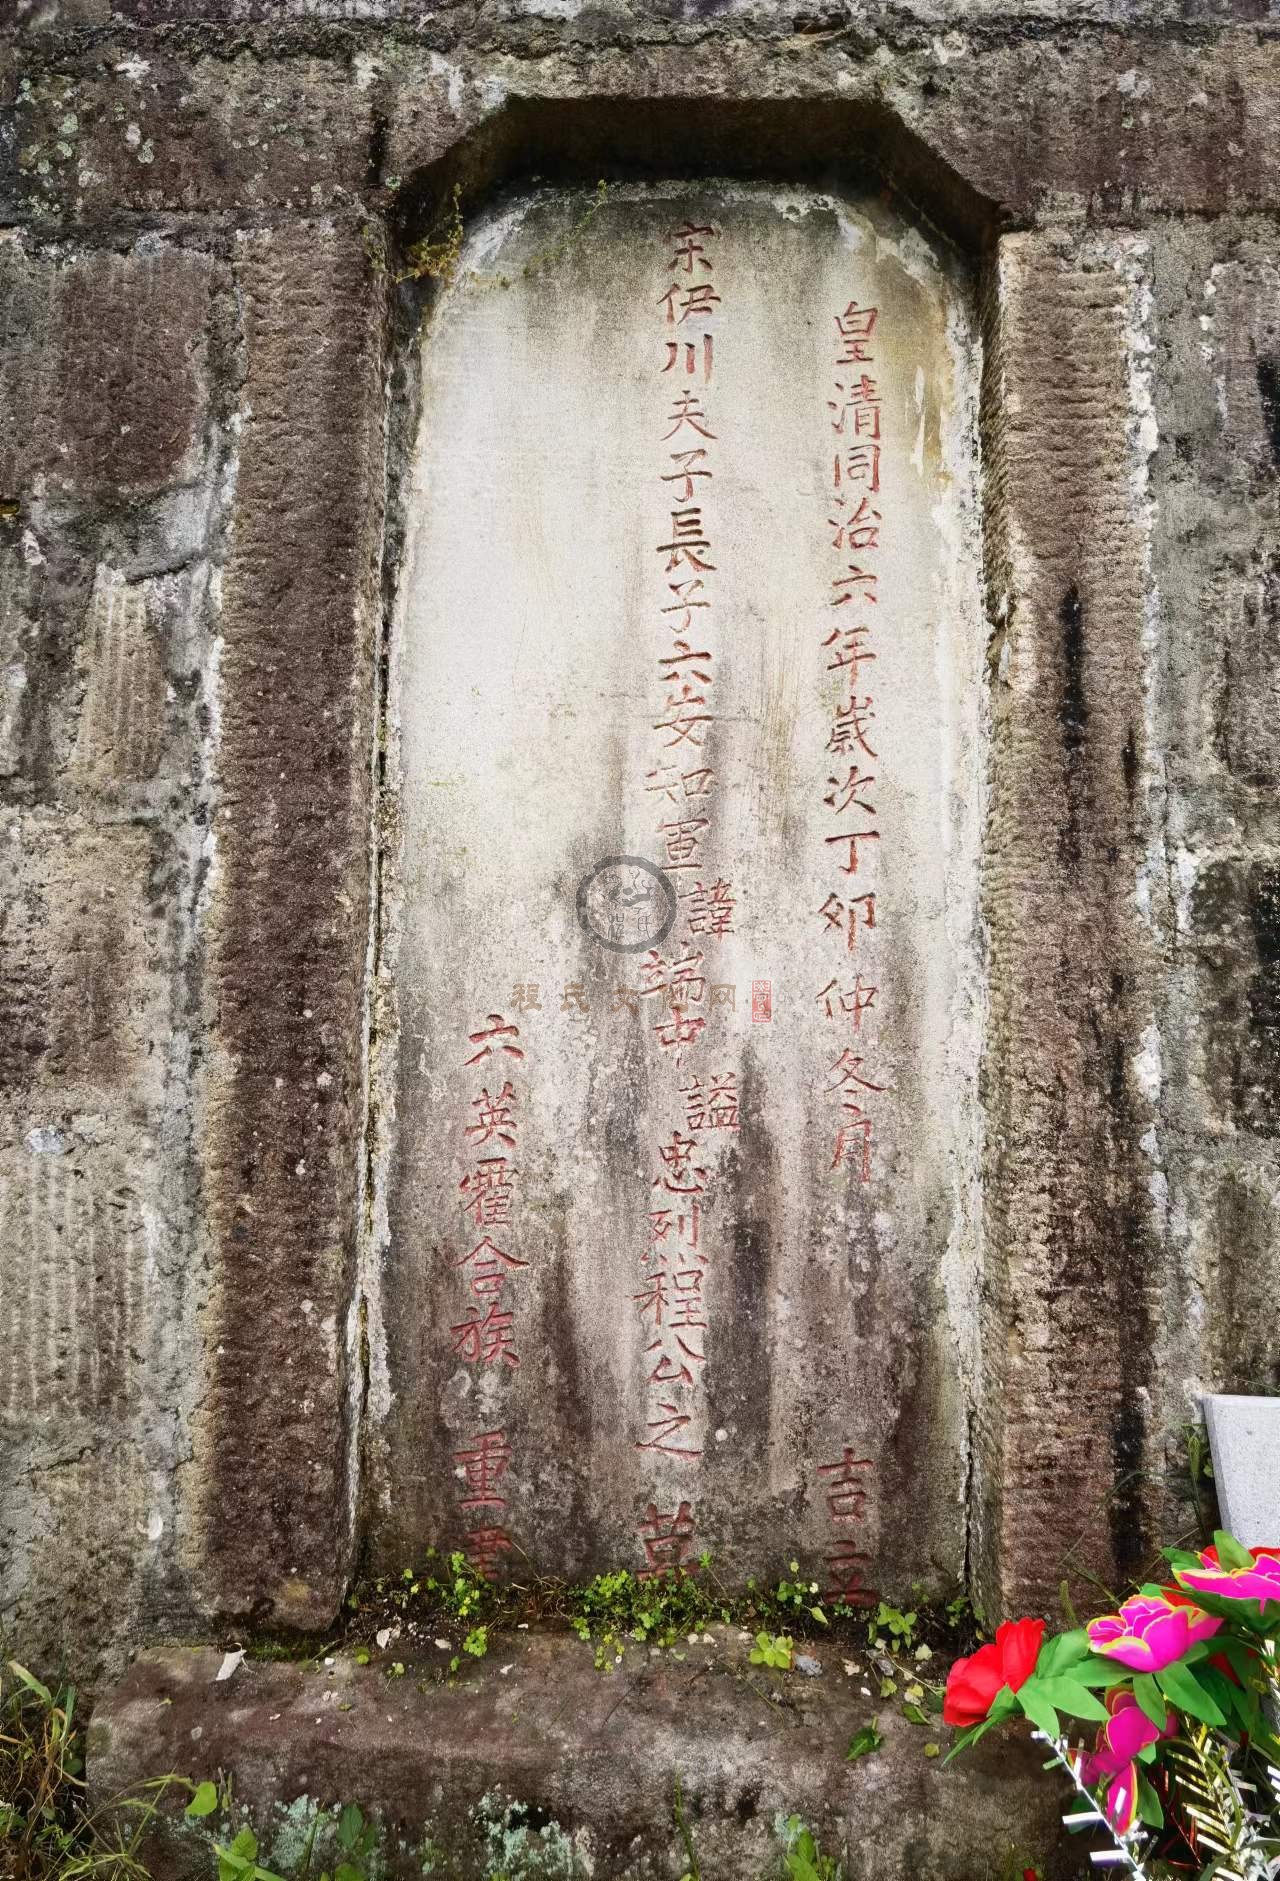 皇清同治六年歲次丁卯仲冬月 吉立
宋伊川夫子長子六安知軍諱端中諡忠烈程公之墓
六英霍合族 重
程氏文化网